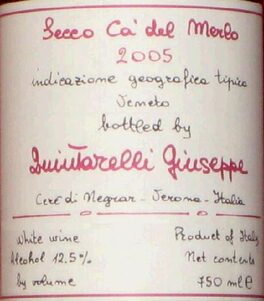 Secco Ca' del Merlo
2005
indicazione geografica tipica
Veneto
bottled by
Quintarelli Giuseppe
Cerè di Negrar - Verona - Italia
white wine
Alcohol 12.5%
by volume
Product of Italy
Net contents
750 ml e